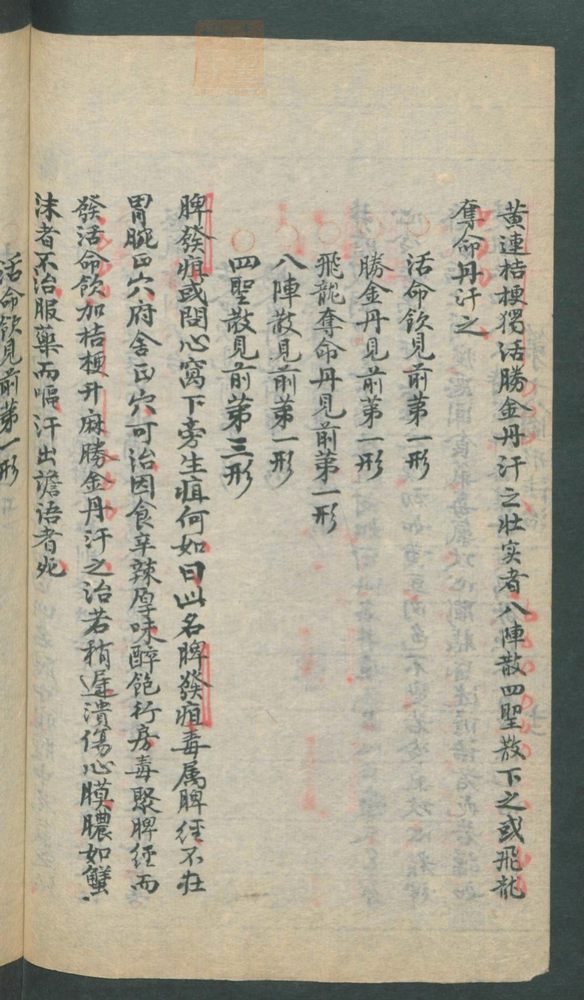 黄連桔梗獨活勝金丹汗之壮实者八陣散四聖散下之或飛龍
奪命丹汗之
活命飲見前第一形
勝金丹見前第一形
飛龍奪命丹見前第一形
八陣散見前第一形
四聖散見前第三形
脾發疽或問心窩下旁生疽何如曰此名脾發疽毒属脾經不在
胃脘正穴府舍正穴可治因食辛辣厚味醉飽行房毒聚脾經而
發活命飲加桔梗升麻勝金丹汗之治若稍遲潰傷心膜膿如蟹
沫者不治服藥而嘔汗出譫语者死
活命飲見前第一形